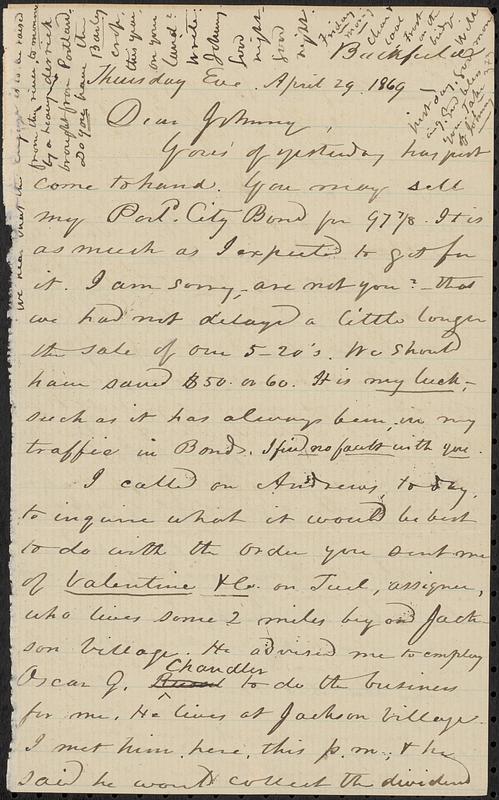 Buckfield
Thursday Eve. April 29. 1869
Dear Johnny,
Yours of yesterday has just
come to hand. You may sell
my Portd. City Bond for 97 7/8. It is
as much as I expected to get for
it. I am sorry, are not you? - that
we had not delayed a little longer
the sale of our 5-20's. We should
have saved $50. or 60. It is my luck,
such as it has always been, in my
traffic in Bonds. I find no fault with you.
I called on Andrews, to-day,
to inquire what it would be best
to do with the order you sent me
of Valentine & Co. on Tuel, assignee,
who lives some 2 miles beyond Jack-
son Village. He advised me to employ
Oscar G. Chandler to do the business
for me. He lives at Jackson Village.
I met him here, this p.m., & he
said he would collect the dividend
we hear that the engine is to be raised
from the river to-morrow
by a heavy derrick
brought from Portland.
Do you have the
Barley
crop
this year,
on your
land?
Write.
Johnny
Good
night.
Good
night.
Friday